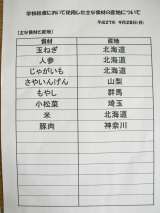 学校給食において使用した主な食材の産地について
平成27年 4月28日(火)
【主な食材と産地】
食材 産地
玉ねぎ 北海道
人参 北海道
じゃがいも 北海道
さやいんげん 山梨
もやし 群馬
小松菜 埼玉
米 北海道
豚肉 神奈川